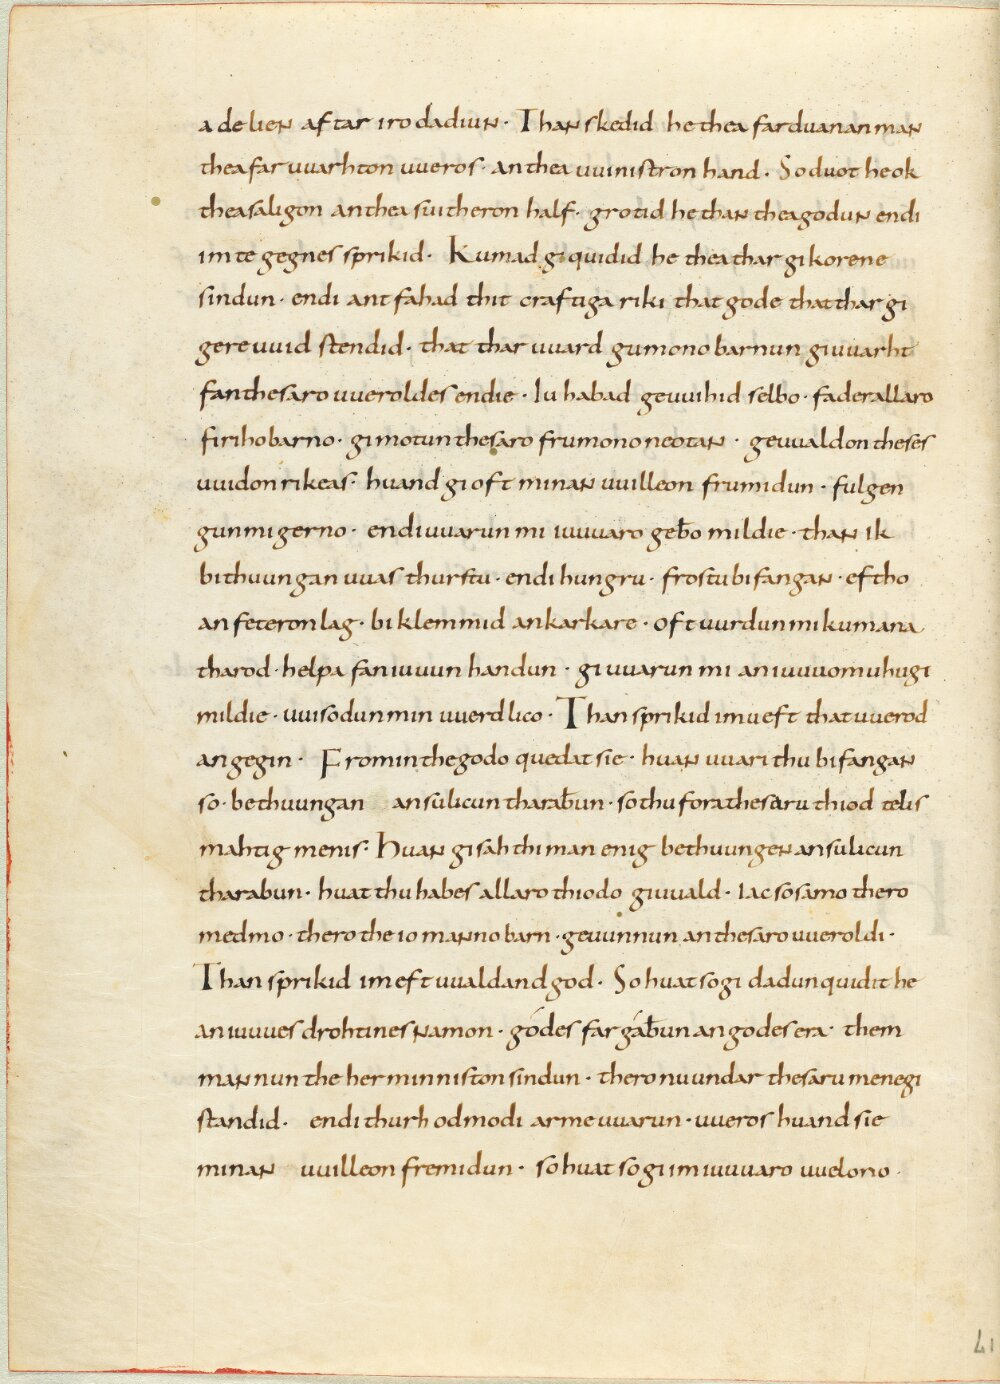 adelien aftar iro dadiun · Than skedid he thea farduanan man
thea faruuarhton uueros · an thea uuinistron hand · So duot he ok
thea saligon an thea suitheron half · grotid he than thea godun endi
im te gegnes sprikid · Kumad gi quidid he thea thar gikorene
sindun · endi antfahad thit craftiga riki that gode that thar gi
gereuuid stendid · that thar uuard gumono barnun giuuarht
fan thesaro uueroldes endie · Iu habad geuuihid selbo · fader allaro
firiho barno · gi motun thesaro frumono neotan · geuualdon theses
uuidon rikeas · huand gi oft minan uuilleon frumidun · fulgen
gun mi gerno · endi uuarun mi iuuuaro geƀo mildie · than ik
bithuungan uuas thurstu · endi hungru · frostu bifangan · eftho
an feteron lag · biklemmid an karkare · oft uurdun mi kumana
tharod · helpa fan iuuun handun · gi uuarun mi an iuuuomu hugi
mildie · uuisodun min uuerdlico · Than sprikid imu eft that uuerod
angegin · Fro min the godo quedat sie · huan uuari thu bifangan
so · bethuungan an sulicun tharaƀun · so thu fora thesaru thiod telis
mahtig menis · Huan gisah thi man enig bethuungen an sulicun
tharabun · huat thu habes allaro thiodo giuuald · Iac so samo thero
medmo · thero the io manno barn · geuunnun an thesaro uueroldi ·
Than sprikid im eft uualdand god · So huat so gi dadun quidit he
an iuuues drohtines namon · gódes fargáƀun an godes era · them
mannun the her minniston sindun · thero nu undar thesaru menegi
standid · endi thurh odmodi arme uuarun · uueros huand sie
minan uuilleon fremidun · so huat so gi im iuuuaro uuelono ·
41